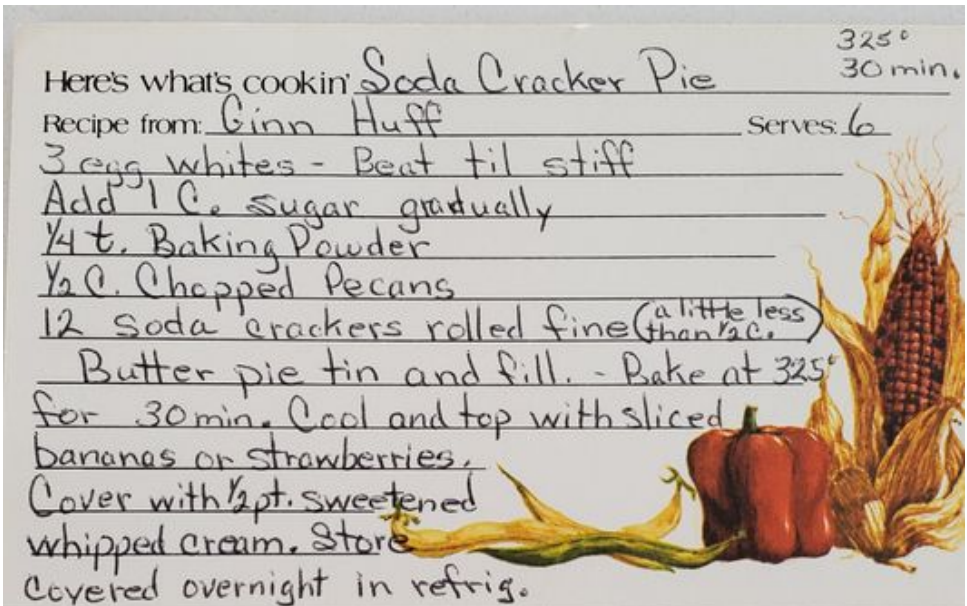 325°
30 min.
Here's what's cookin' Soda Cracker Pie
Recipe from: Ginn Huff Serves: 6
3 egg whites - Beat til stiff
Add 1 C. sugar gradually
1/4 t. Baking Powder
1/2 C. Chopped Pecans
12 soda crackers rolled fine (a little less than 1/2 C.)
Butter pie tin and fill. - Bake at 325°
for 30 min. Cool and top with sliced
bananas or strawberries.
Cover with 1/2 pt. sweetened
whipped cream. Store
covered overnight in refrig.